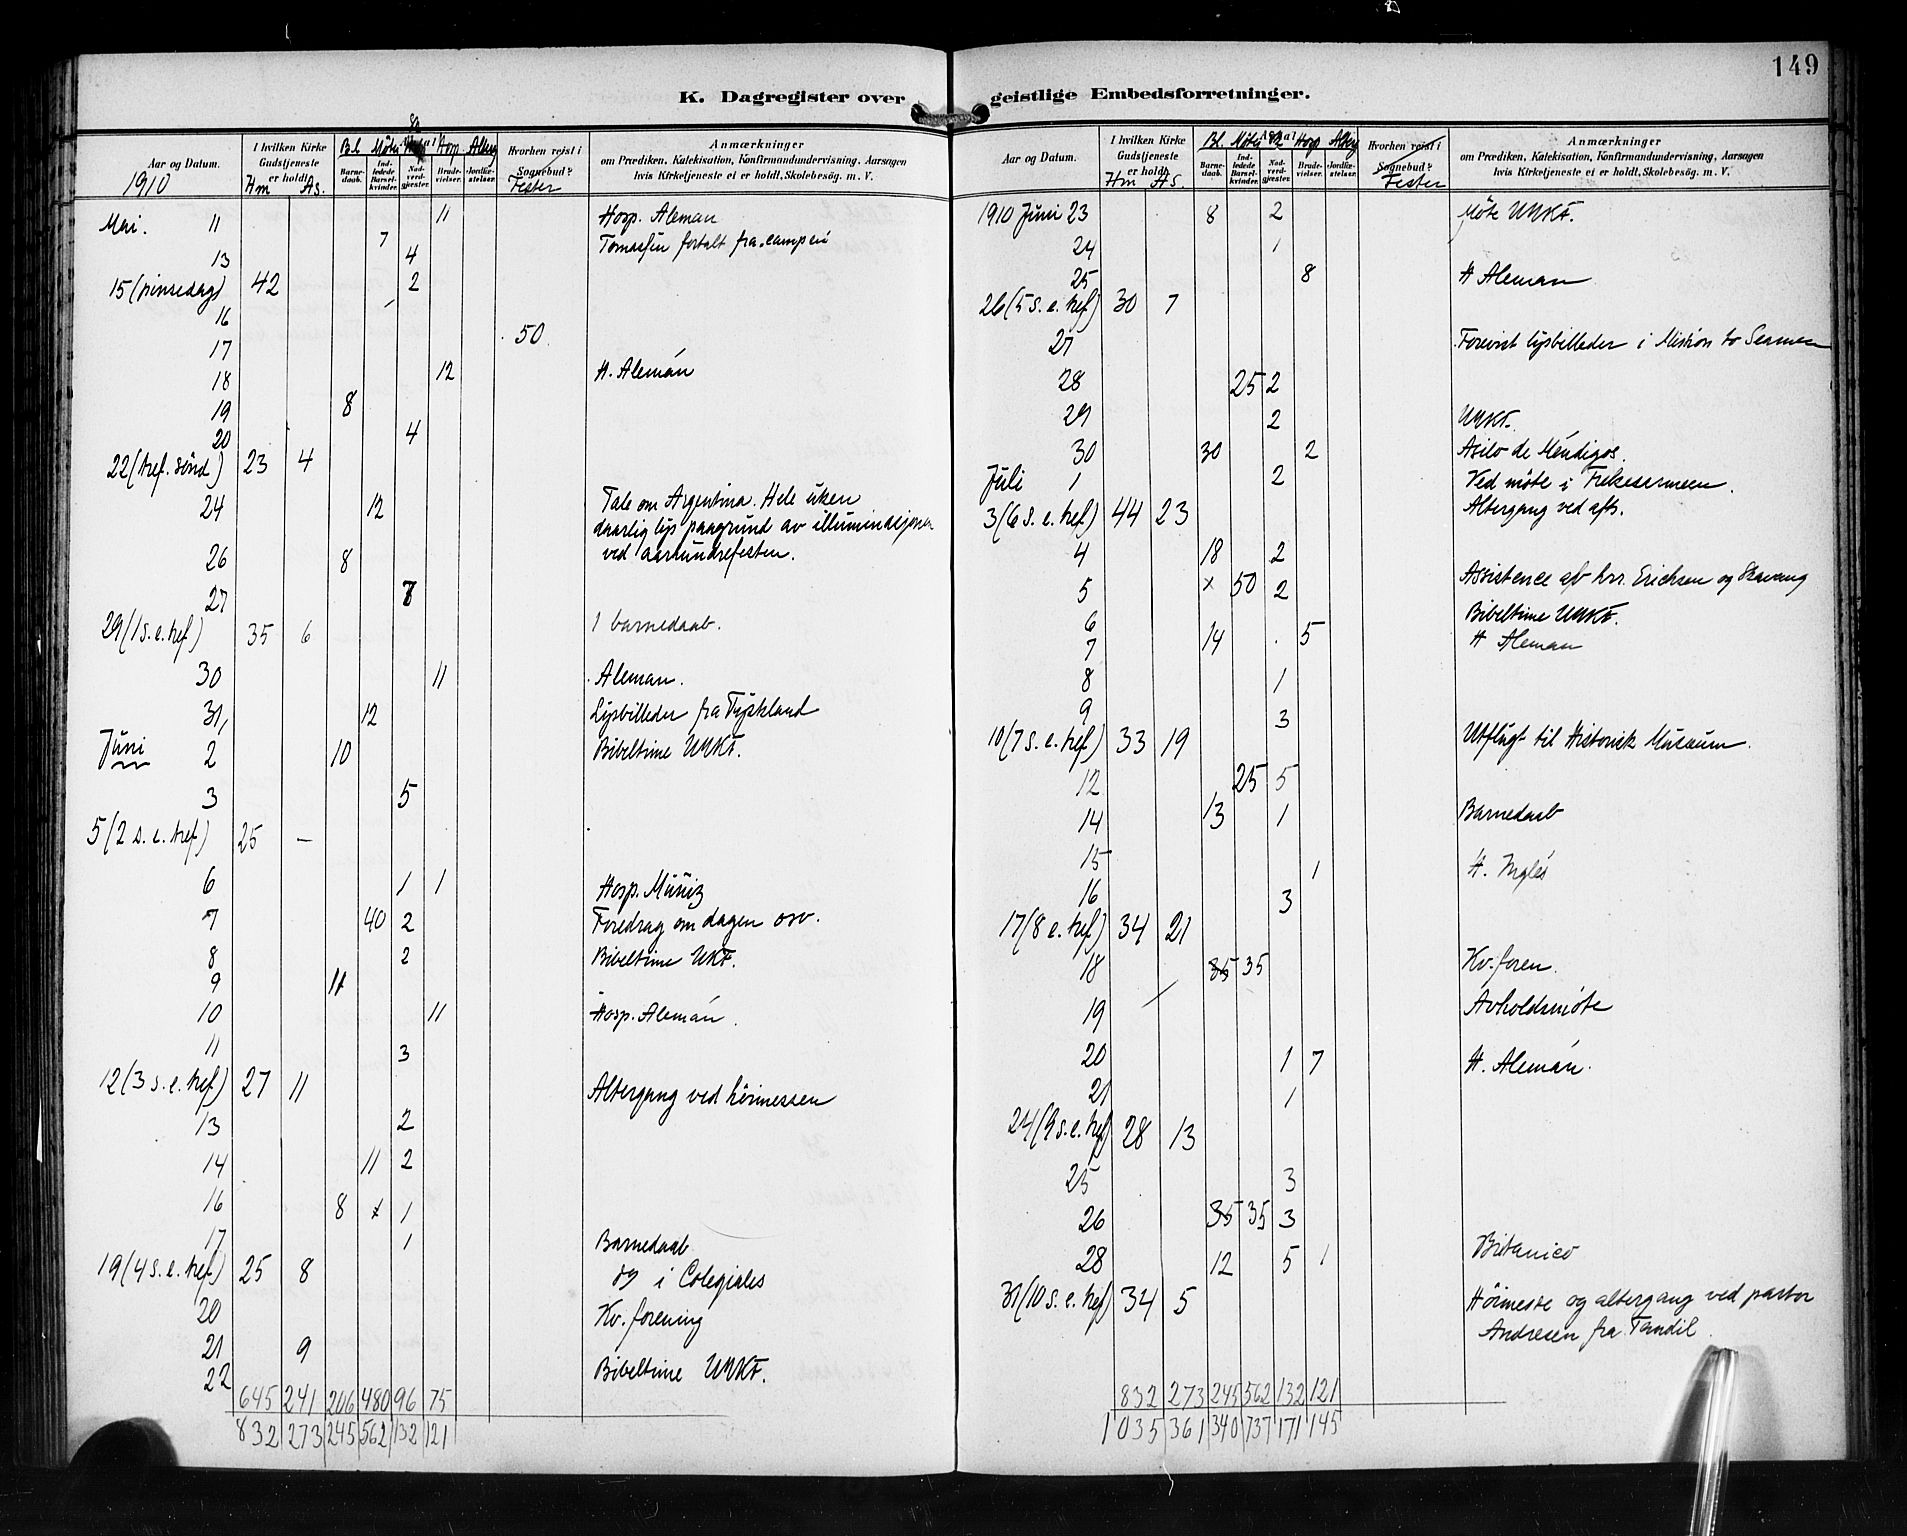 149
K. Dagregister over geistlige Embedsforretninger.
Aar og Datum. 1910 | I hvilken Kirke Gudstjeneste er holdt. Hm As. | Antal | Bl. Barnedaab. | Møter Indledede Barselkvinder. | Nadverdgjester. | Hosp. Brudevielser. | Alberg Jordfæstelser. | Hvorhen reist i Sognebud? Fester | Anmærkninger om Prædiken, Katekisation, Konfirmandundervisning, Aarsagen hvis Kirketjeneste ei er holdt, Skolebesøg. m. V.
Mai. 11 11 Hosp. Aleman
7 Tomasfin fortalt fra campen
13 4
15 (pinsedag) 42 2
16
17 50
18 12 H. Alemán
19 8
20 4
22 (tref. sønd) 23 4
24 12 Tale om Argentina. Hele uken
daarlig lys paagrund av illuminasjonen
ved aarhundrefesten.
26 8
27 7
29 (1 s. e. tref.) 35 6 1 barnedaab.
30 11 Aleman.
31, 12 Lysbilleder fra Tyskland
Juni 2 10 Bibeltime UMKF.
3 5
5 (2 s. e. tref) 25 —
6 1 1 Hosp. Muñiz
7 40 2 Foredrag om dagen osv.
8 2 Bibeltime UKF.
9 11
10 11 Hosp. Alemán.
11 3
12 (3 s. e. tref) 27 11 Altergang ved høimessen
13 2
14 11 2
16 8 x 1
17 1 Barnedaab
19 (4 s. e. tref.) 25 8 do i Colegiales
20 Kv. forening
21 9
22 Bibeltime UMKF.
645 241 206 480 96 75
832 273 245 562 132 121
Aar og Datum. | I hvilken Kirke Gudstjeneste er holdt. Hm As. | Antal | Bl. Barnedaab. | Møter Indledede Barselkvinder. | Nadverdgjester. | Hosp Brudevielser. | Alberg Jordfæstelser. | Hvorhen reist i Sognebud? Fester | Anmærkninger om Prædiken, Katekisation, Konfirmandundervisning, Aarsagen hvis Kirketjeneste ei er holdt, Skolebesøg. m. V.
1910 Juni 23 8 2 Møte UMKF.
24 1
25 8 H Aleman
26 (5 s. e. tref) 30 7
27 Forevist lysbilleder i Mission to Seamen
28 25 2
29 2 UMKF.
30 30 2 Asilo de Mendigos.
Juli 1 2 Ved møte i Frelsesarmeen.
3 (6 s. e. tref) 44 23 Altergang ved afts.
4 18 2
5 x 50 2 Assistence af hrr. Erichsen og Skavang
6 Bibeltime UMKF.
7 14 5 H Aleman
8 1
9 3
10 (7 s. e. tref) 33 19 Utflugt til Historisk Museum.
12 25 5
14 13 1 Barnedaab
15 1 H. Inglés
16 3
17 (8 e. tref) 34 21
18 35 35 Kv. foren.
19 Avholdsmøte
20 1 7 H. Alemán.
21 1
24 (9 s. e. tref) 28 13
25 3
26 35 35 3
28 12 5 1 Britanico
31 (10 s. e. tref) 34 5 Høimesse og altergang ved pastor
Andresen fra Tandil.
832 273 245 562 132 121
1035 361 340 737 171 145